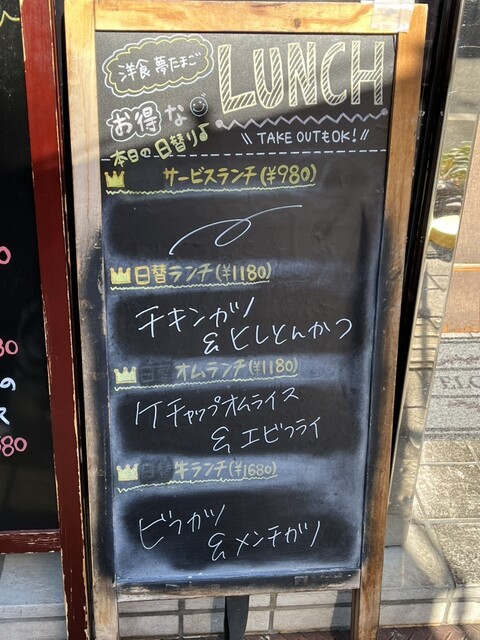 洋食 夢たまご
LUNCH
お得な
TAKE OUTもOK!
本日の日替り♪
サービスランチ(¥980)
日替ランチ(¥1180)
チキンカツ
&ヒレとんかつ
オムランチ(¥1180)
ケチャップオムライス
&エビフライ
牛ランチ(¥1680)
ビフカツ
&メンチカツ
の
ス